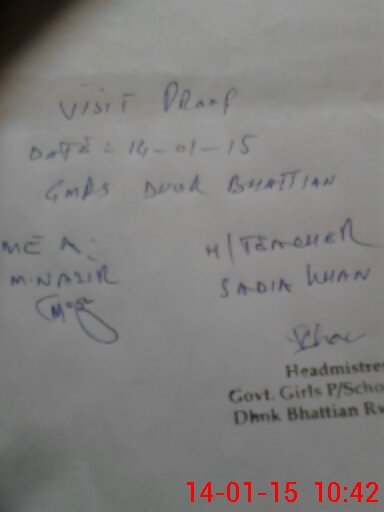 VISIT PROOF
DATE = 14-01-15
GMPS DHOK BHATTIAN
MEA: H/TEACHER
M.NAZIR SADIA KHAN
Headmistres
Govt. Girls P/Scho
Dhok Bhattian Rw
14-01-15 10:42